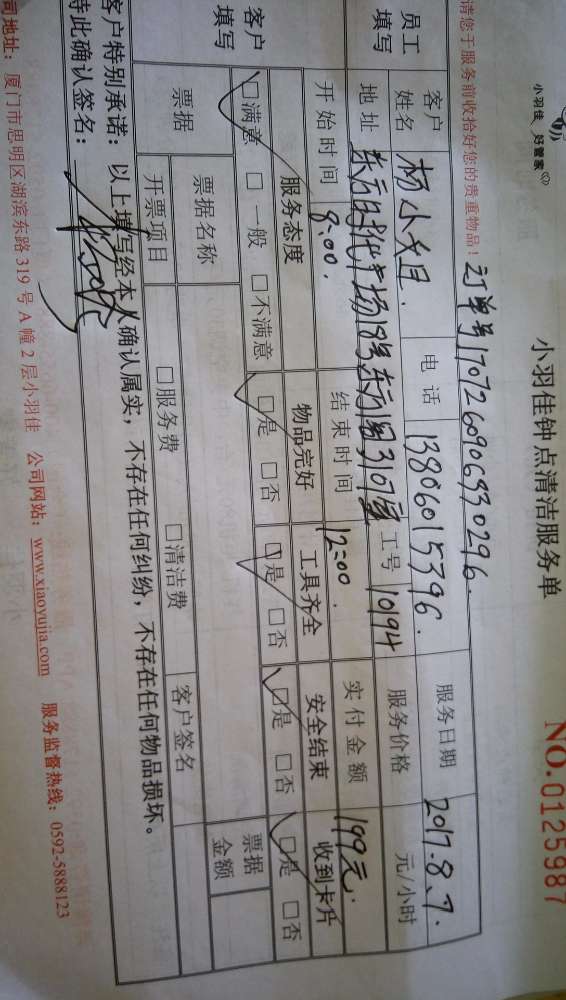 小羽佳 好管家
小羽佳钟点清洁服务单
NO.0125987
请您于服务前收拾好您的贵重物品！
订单号
员工填写 客户姓名 杨小 电话 13806015396. 服务日期 2017.8.7.
地址 东方时代广场18号东方阁3107室 工号 10194 服务价格 元/小时
开始时间 8:00. 结束时间 12:00. 实付金额 199元.
客户填写 服务态度 物品完好 工具齐全 安全结束 收到卡片
□满意 □一般 □不满意 □是 □否 □是 □否 □是 □否 □是 □否
票据 票据名称 票据金额
开票项目 □服务费 □清洁费 客户签名
客户特别承诺：以上填写经本人确认属实，不存在任何纠纷，不存在任何物品损坏。
特此确认签名：
司地址：厦门市思明区湖滨东路319号A幢2层小羽佳 公司网站：www.xiaoyujia.com 服务监督热线：0592-5888123